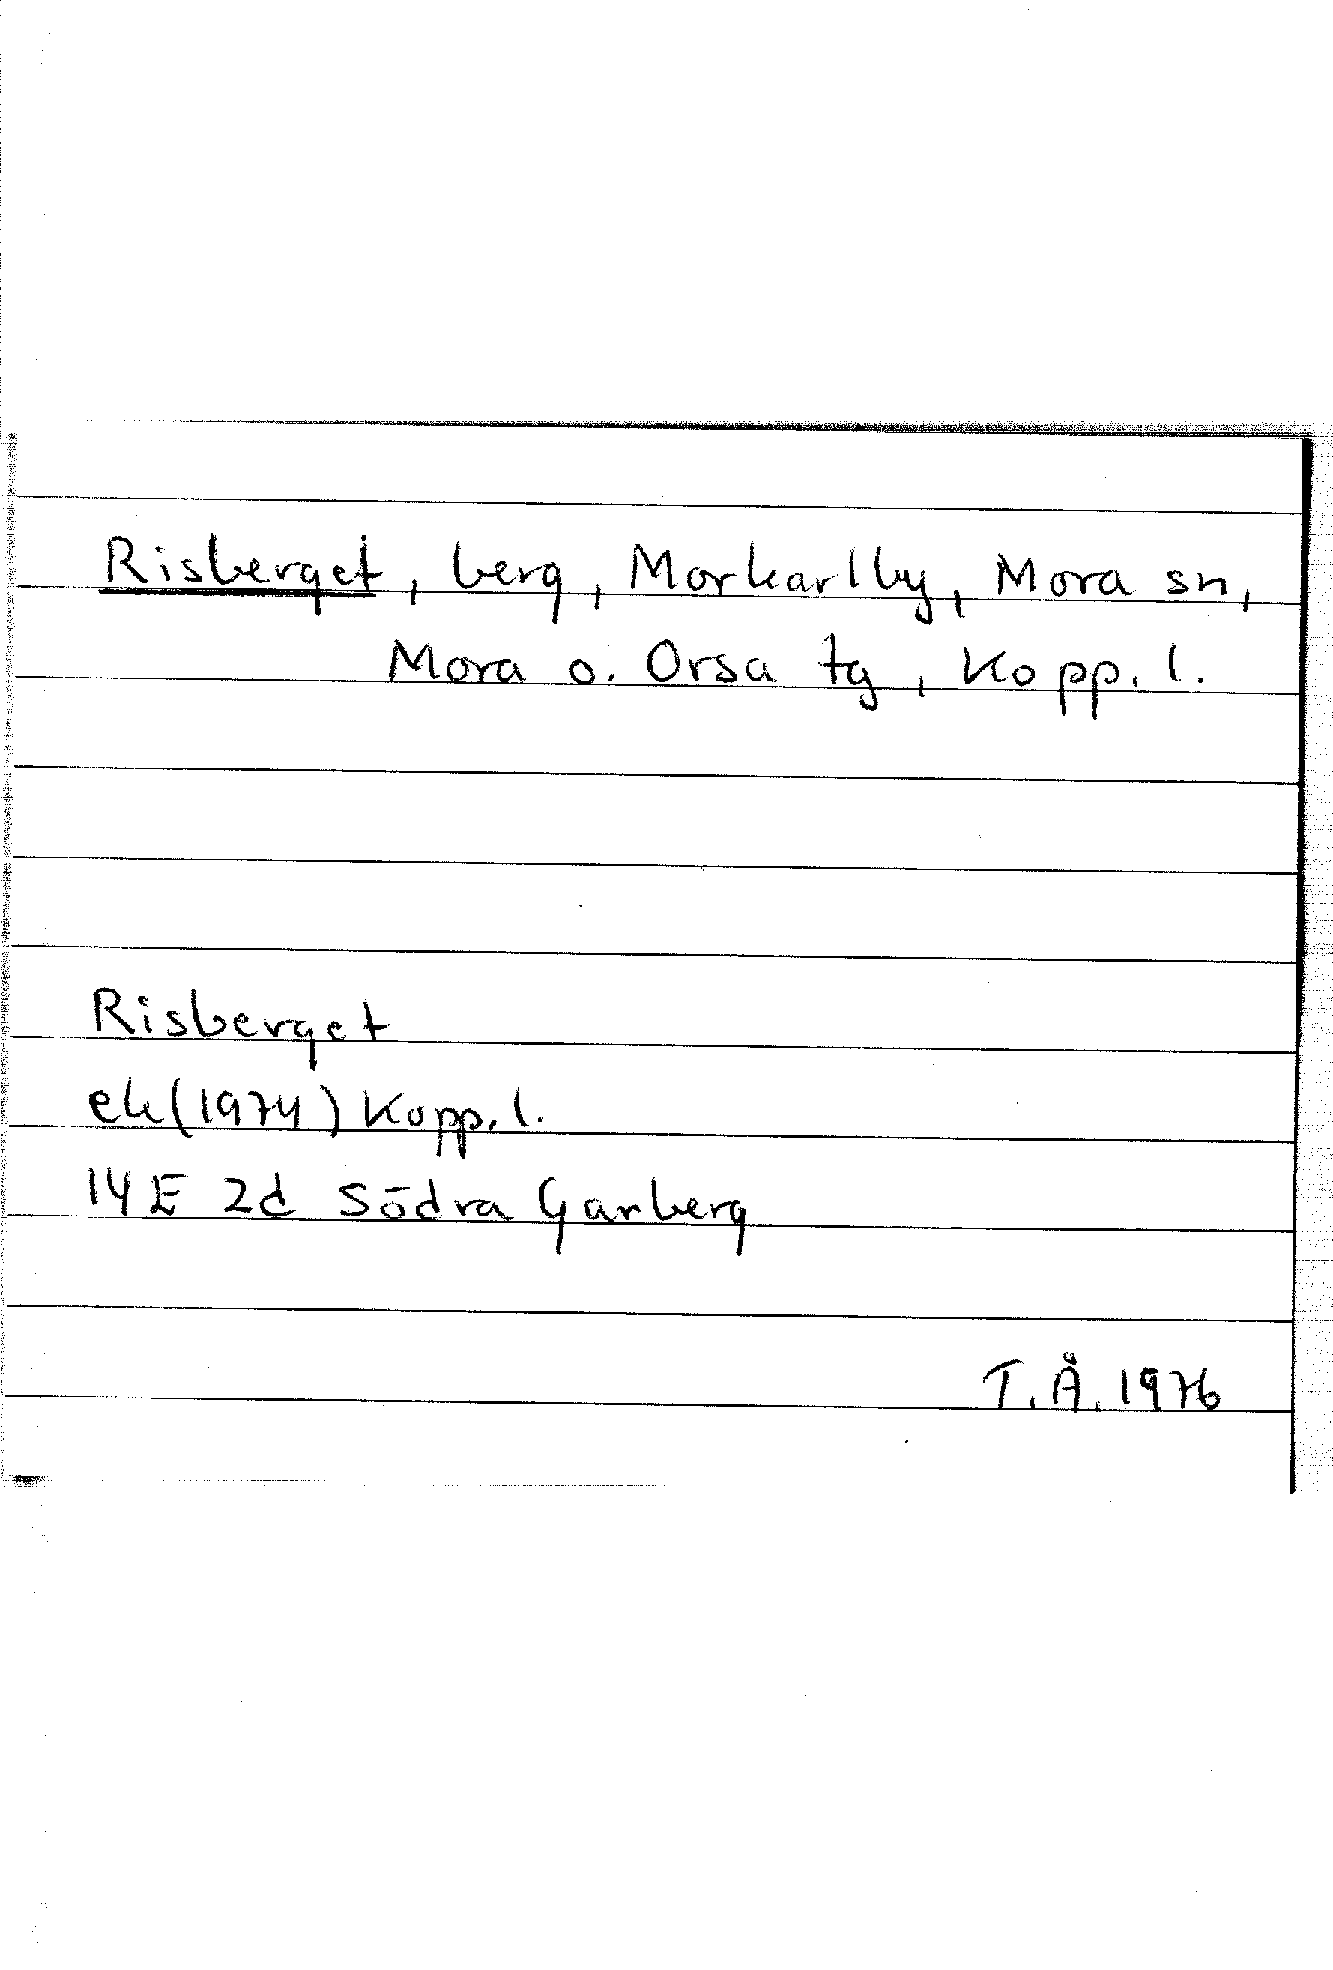 Risberget, berg, Morkarlby, Mora sn,
Mora o. Orsa tg, Kopp. l.
Risberget
ek(1974) Kopp. l.
14E 2d Södra Garberg
T.Å. 1976